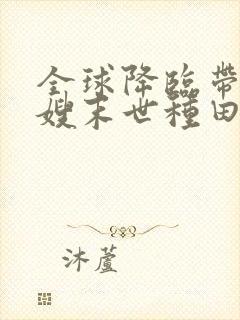 全球降臨帶
嫂末世種田
沐蘆